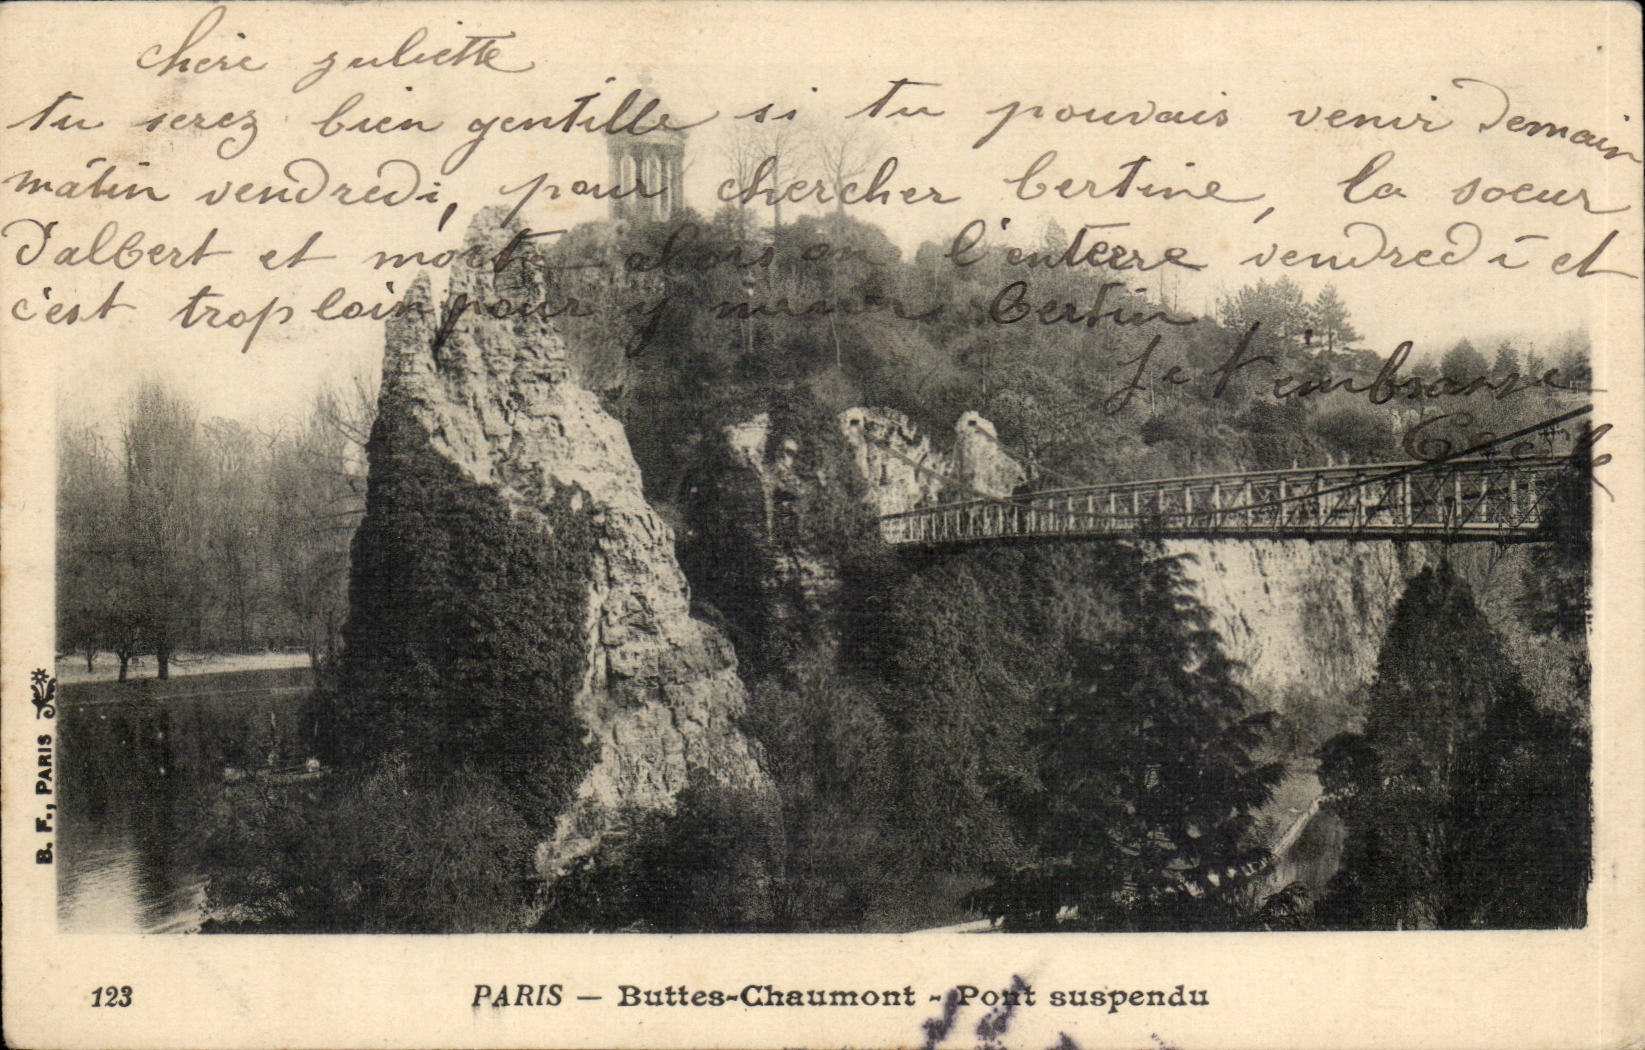 chère juliette
tu serez bien gentille si tu pouvais venir demain
matin vendredi, pour chercher bertine, la soeur
d'albert et morte alors on l'enterre vendredi et
c'est trop loin pour y mener bertin
Je t'embrasse
Cécile
B. F., PARIS
123 PARIS – Buttes-Chaumont - Pont suspendu